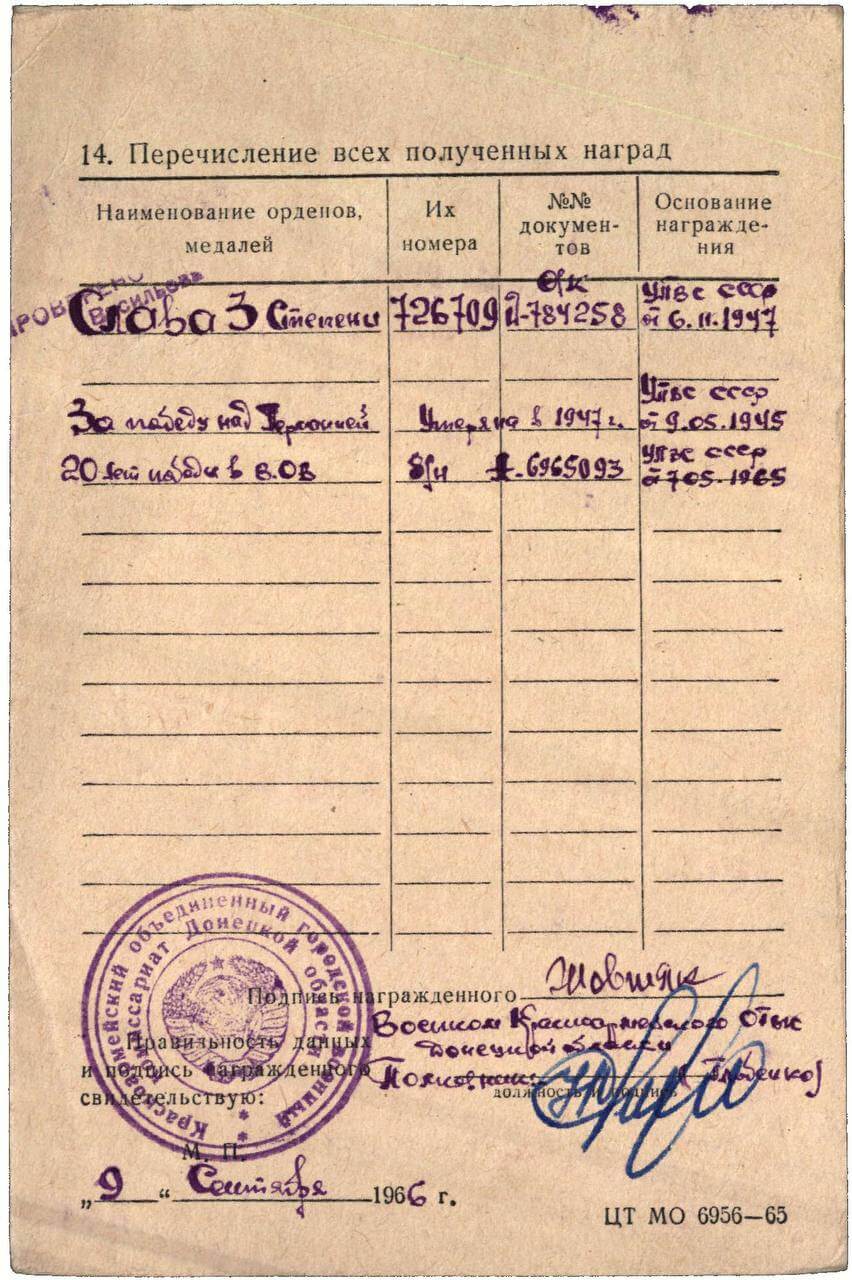 14. Перечисление всех полученных наград
Наименование орденов, медалей
Их номера
№№ докумен-тов
Основание награжде-ния
ПРОВЕРЕНО
Васильева
Слава 3 Степени 726709 784258 УПВС СССР от 6.11.1947
За победу над Германией Утеряна в 1947 г. УПВС СССР от 9.05.1945
20 лет победы в В.О.В б/н 6965093 УПВС СССР от 7.05.1965
Красноармейский объединенный городской военный
комиссариат Донецкой области
Подпись награжденного
Правильность данных
и подпись награжденного
свидетельствую:
Военком Красноармейского ОГВК
Донецкой области
Полковник
должность и подпись
М. П.
„9“ Сентября 1966 г.
ЦТ МО 6956—65